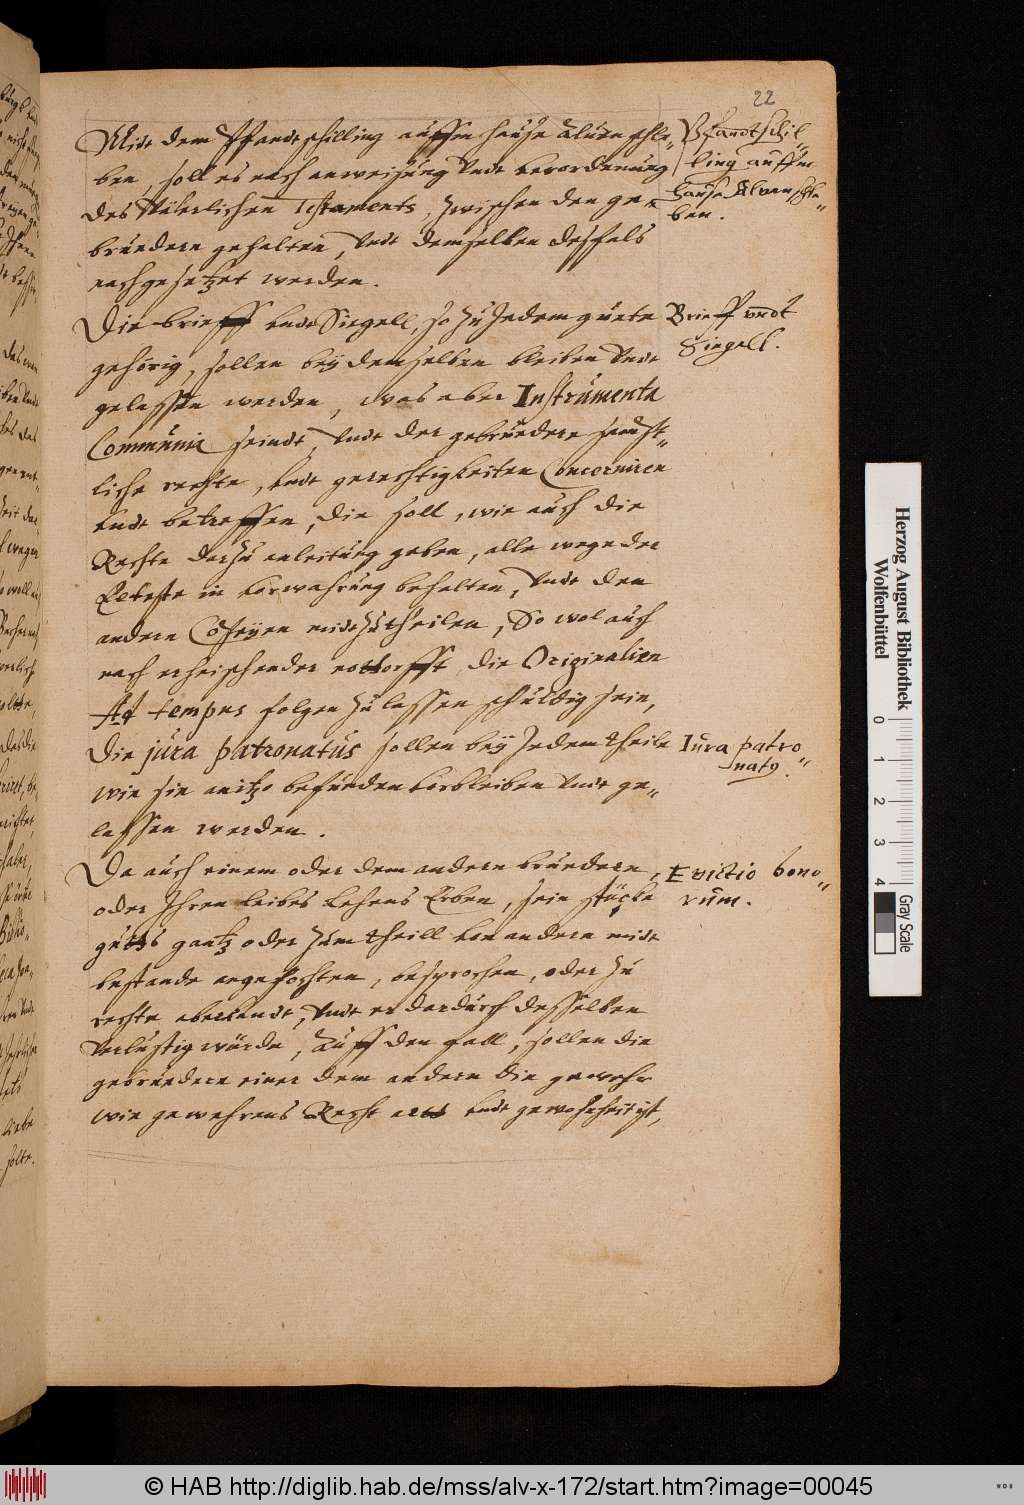 22
Midt dem Pfandtschilling auffm hause Aluenschle„
ben, soll es nach anweisung vndt verordenung
des Väterlichen Testaments, zwischen den ge„
brüedern gehalten, vndt demselben desfals
nachgesatzet werden.
Pfandtschil„
ling auffm
hause Alvenschle„
ben.
Die brieff vndt Siegell, so zu Jedem guete
gehörig, sollen beÿ demselben bleiben vndt
gelassen werden, was aber Instrumenta
Communia seindt, vndt der gebrüedere sembt„
liche rechte, vndt gerechtigkeiten Concerniren
vndt betreffen, die soll, wie auch die
Rechte darzu anleitung geben, alle wege der
Elteste in vorwahrung behalten, vndt den
andern Copeyen midtzutheilen, So wol auch
nach erheischender notdorfft die Originalien
Ad tempus folgen zu lassen schuldig sein,
Brieff vndt
Siegell.
Die jura patronatus sollen beÿ Jedem theile
wie sie anitzo befunden vorbleiben vndt ge„
lassen werden.
Jura patro„
naty.
Da auch einem oder dem andern brüedern,
oder Ihren leibes Lehens Erben, sein stücke
gutts gantz oder zum theill von andern midt
bestande angefochten, besprochen, oder zu
rechte aberkandt, vndt er dardurch desselben
verlustig würde, Auff den fall, sollen die
gebrüedere einer dem andern die gewehr
wie gewehrens Recht vndt gewohnheit ist,
Evictio bono„
rum.
Herzog August Bibliothek
Wolfenbüttel
0 1 2 3 4
Gray Scale
© HAB http://diglib.hab.de/mss/alv-x-172/start.htm?image=00045